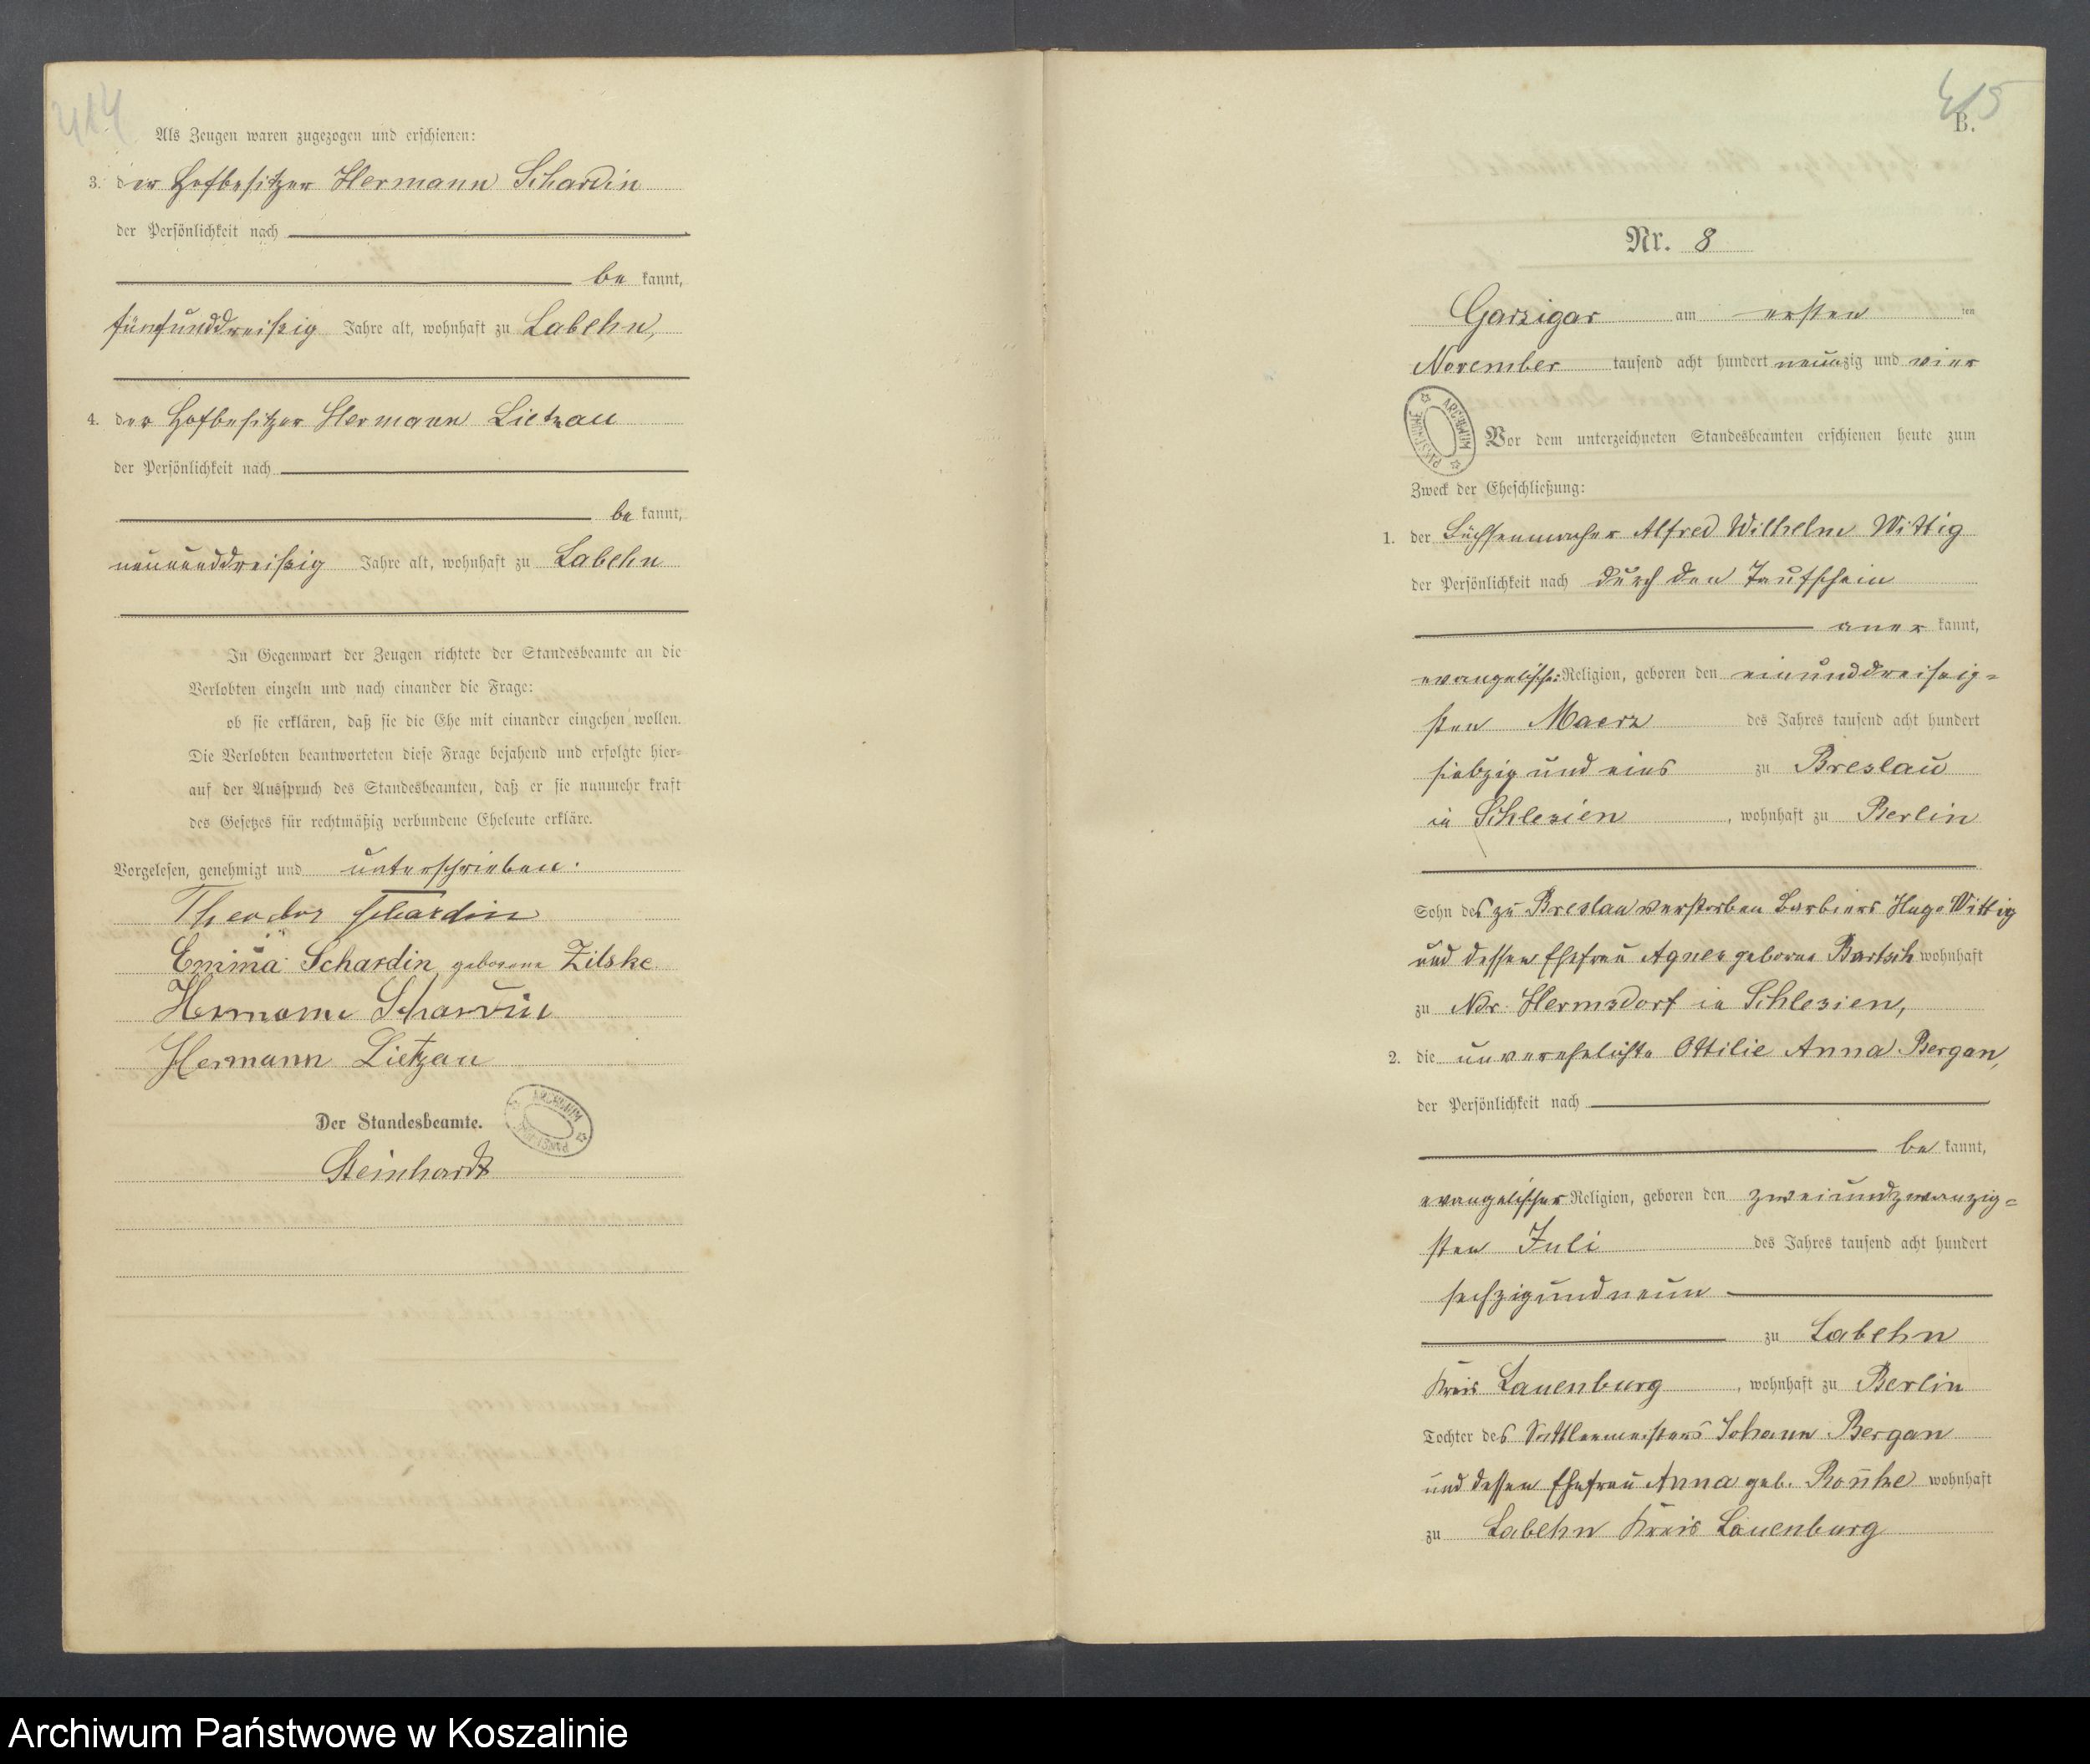 414
Als Zeugen waren zugezogen und erschienen:
3. der Hofbesitzer Hermann Schardin
der Persönlichkeit nach
be kannt,
fünfunddreißig Jahre alt, wohnhaft zu Labehn,
4. der Hofbesitzer Hermann Lietzau
der Persönlichkeit nach
be kannt,
neununddreißig Jahre alt, wohnhaft zu Labehn
In Gegenwart der Zeugen richtete der Standesbeamte an die
Verlobten einzeln und nach einander die Frage:
ob sie erklären, daß sie die Ehe mit einander eingehen wollen.
Die Verlobten beantworteten diese Frage bejahend und erfolgte hier-
auf der Ausspruch des Standesbeamten, daß er sie nunmehr kraft
des Gesetzes für rechtmäßig verbundene Eheleute erkläre.
Vorgelesen, genehmigt und unterschrieben.
Theodor Schardin
Emma Schardin geborene Zilske
Hermann Schardin
Hermann Lietzau
Der Standesbeamte.
ARCHIWUM PAŃSTWOWE
Steinhardt
415
B.
Nr. 8
Garzigar am ersten ten
November tausend acht hundert neunzig und vier
ARCHIWUM PAŃSTWOWE
Vor dem unterzeichneten Standesbeamten erschienen heute zum
Zweck der Eheschließung:
1. der Büchsenmacher Alfred Wilhelm Wittig
der Persönlichkeit nach durch den Taufschein
aner kannt,
evangelischer Religion, geboren den einunddreißig-
sten Maerz des Jahres tausend acht hundert
siebzig und eins zu Breslau
in Schlesien, wohnhaft zu Berlin
Sohn des zu Breslau verstorben Barbiers Hugo Wittig
und dessen Ehefrau Agnes geborne Bartsch wohnhaft
zu Ndr. Hermsdorf in Schlesien,
2. die unverehelichte Ottilie Anna Bergan,
der Persönlichkeit nach
be kannt,
evangelischer Religion, geboren den zweiundzwanzig-
sten Juli des Jahres tausend acht hundert
sechzigundneun
zu Labehn
Kreis Lauenburg, wohnhaft zu Berlin
Tochter des Sattlermeisters Johann Bergan
und dessen Ehefrau Anna geb. Ronnke wohnhaft
zu Labehn Kreis Lauenburg
Archiwum Państwowe w Koszalinie